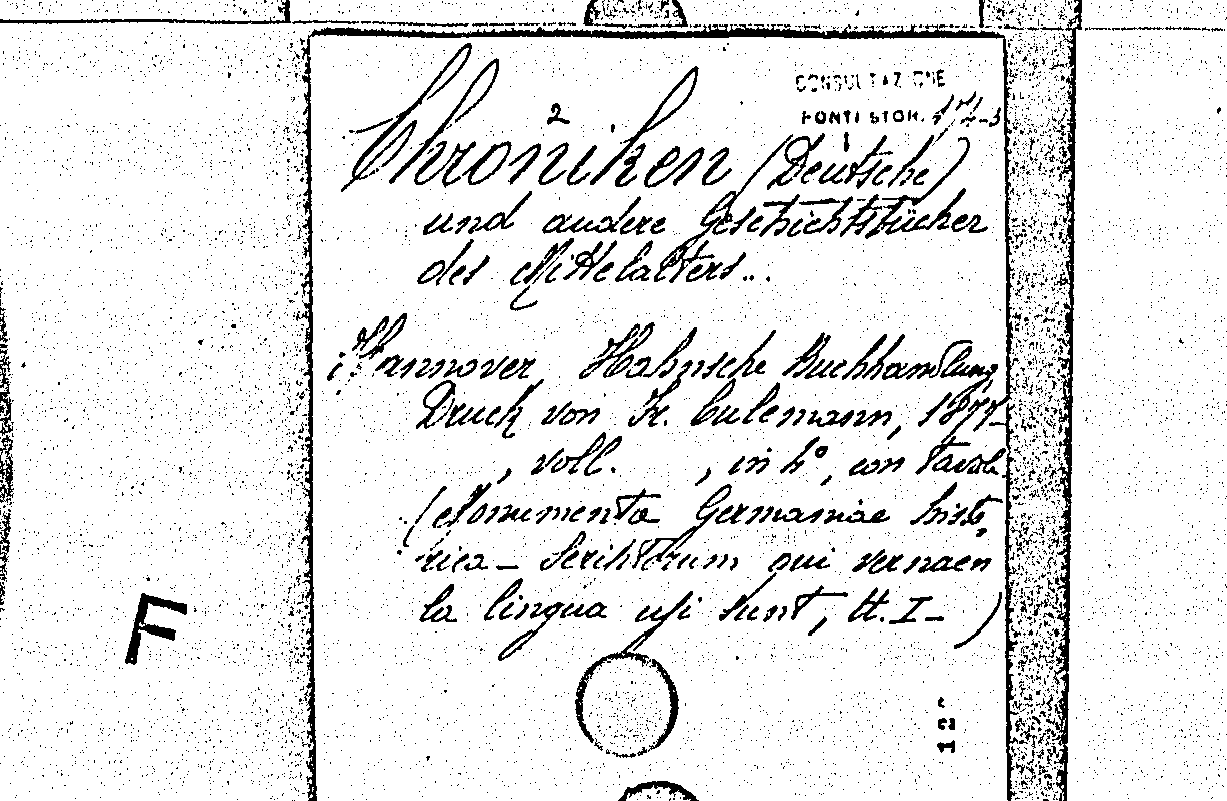 CONSULTAZIONE
FONTI STOR. 174-3
2 1
Chroniken (Deutsche)
und andere Geschichtsbücher
des Mittelalters...
Hannover, Hahnsche Buchhandlung,
Druck von Fr. Culemann, 1877-
, voll. , in 4°, con tavole
(Monumenta Germaniae histo-
rica - Scriptorum qui vernacu
la lingua usi sunt, tt. I- )
F